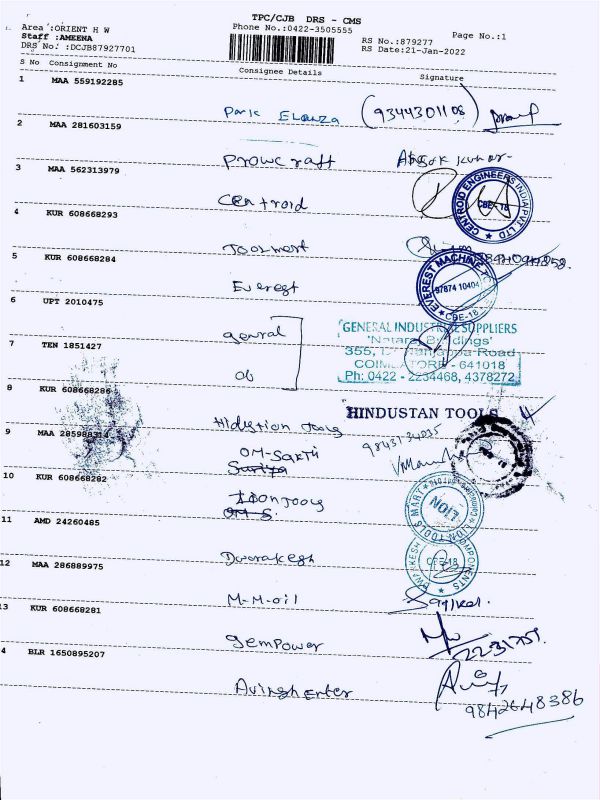 TPC/CJB DRS - CMS
Area :ORIENT H W
Phone No.:0422-3505555
Page No.:1
Staff :AMEENA
RS No.:879277
DRS No. :DCJB87927701
RS Date:21-Jan-2022
S No Consignment No
Consignee Details
Signature
1 MAA 559192285
Park Elanza (9344301108)
2 MAA 281603159
Prowcraft Ashok Kumar-
3 MAA 562313979
Centroid
CENTROID ENGINEERS INDIA(P) LTD
CBE-18
4 KUR 608668293
Toolmart
5 KUR 608668284
Everest
EVEREST MACHINE
97874 10404
CBE-18
6 UPT 2010475
general
GENERAL INDUSTRIAL SUPPLIERS
Buildings'
7 TEN 1851427
355, Nanjappa Road
COIMBATORE - 641018
Ph: 0422 - 2234468, 4378272
8 KUR 608668286
HINDUSTAN TOOLS
Hidustion Tools
9 MAA 285988314
OM-Sakthi
10 KUR 608668282
Liontools
LION TOOLS MART
LION
11 AMD 24260485
Dwarakesh
COMPONENTS
CBE-18
12 MAA 286889975
M-M-oil
13 KUR 608668281
gempower
2231751.
4 BLR 1650895207
Avinsh Enter
9842648386